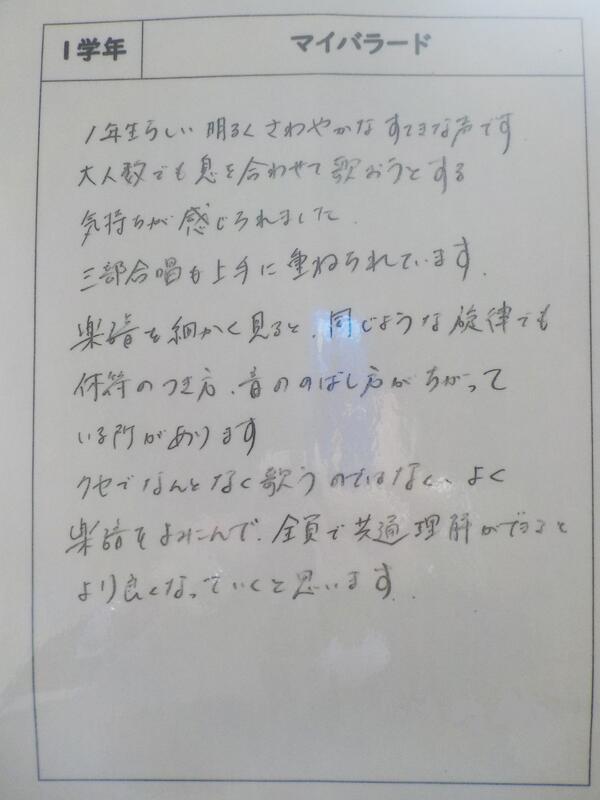 1学年
マイバラード
1年生らしい明るくさわやかなすてきな声です
大人数でも息を合わせて歌おうとする
気持ちが感じられました.
三部合唱も上手に重ねられています.
楽譜を細かく見ると、同じような旋律でも
休符のつき方、音ののばし方がちがって
いる所があります
クセでなんとなく歌うのではなく、よく
楽譜をよみこんで、全員で共通理解ができると
より良くなっていくと思います.